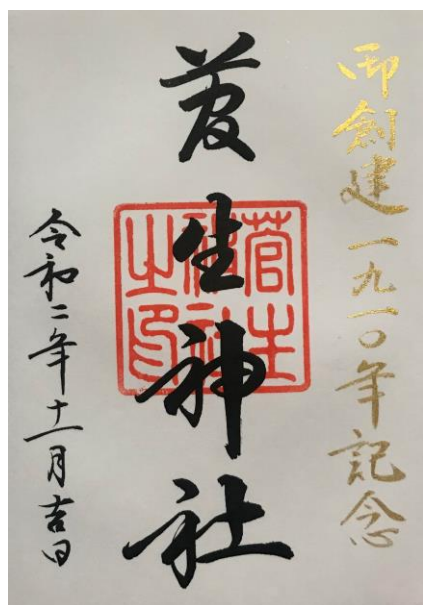 御創建一九一〇年記念
菅生神社
菅生神社之印
令和二年十一月吉日